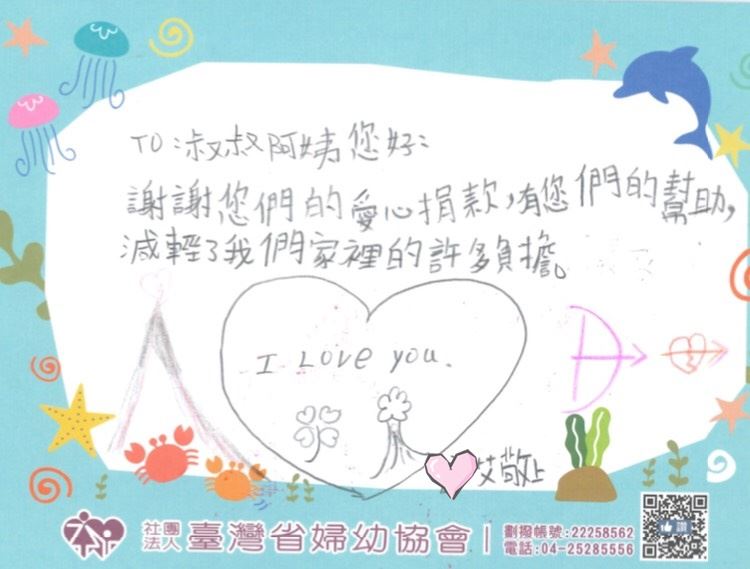 TO:淑叔阿姨您好:
謝謝您們的愛心捐款,有您們的幫助,
減輕了我們家裡的許多負擔。
I Love you.
艾敬上
社團
法人
臺灣省婦幼協會
劃撥帳號:22258562
電話:04-25285556
讚